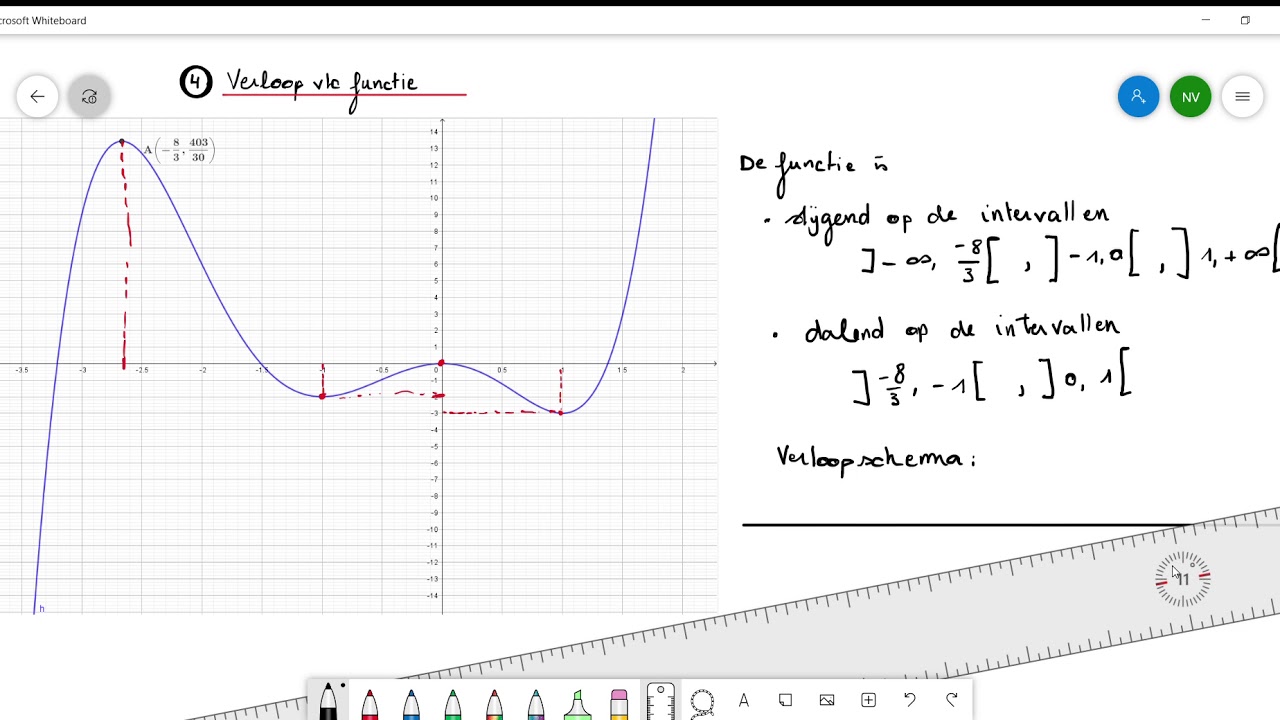 crosoft Whiteboard
4 Verloop v/e functie
NV
A(-8/3, 403/30)
De functie is
• stijgend op de intervallen
]-∞, -8/3[ , ]-1,0[ , ]1,+∞[
• dalend op de intervallen
]-8/3, -1[ , ]0, 1[
Verloopschema:
14
13
12
11
10
9
8
7
6
5
4
3
2
1
-3.5 -3 -2.5 -2 -1.5 -1 -0.5 0 0.5 1 1.5 2
-1
-2
-3
-4
-5
-6
-7
-8
-9
-10
-11
-12
-13
-14
h
11°
A